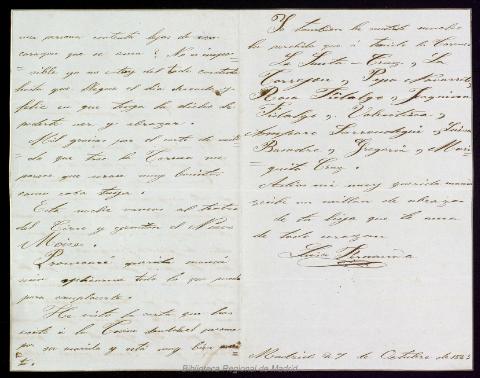 una persona contenta lejos de un
corazon que se ama? No es impo-
sible yo no estoy del todo contenta
hasta que llegue el dia
feliz en que tenga la dicha de
poderte ver y abrazar.
Mil gracias por el corte de vesti-
do que trae la Correa me
parece que seran muy bonitos
como cosa tuya.
Esta noche vamos al teatro
del Circo y ejecutan el Nuevo
Moises.
Procuraré querida mamá
mia todo lo que pueda
para complacerte.
He visto la carta que has
escrito á la
su marido y está muy bien
Yo tambien he escrito
he escrito á
y Santa-Cruz y La
Torrejon y Pepa
Rosa Fidalgo y Joaquina
Fidalgo y Valentina y
Amparo y Luisa
y Gregoria y Mari-
quita Cruz.
Adios mi muy querida mamá
recibe un millon de abrazos
de tu hija que te ama
de todo corazon
Luisa Fernanda
Madrid 27 de Octubre de
Biblioteca Regional de Madrid